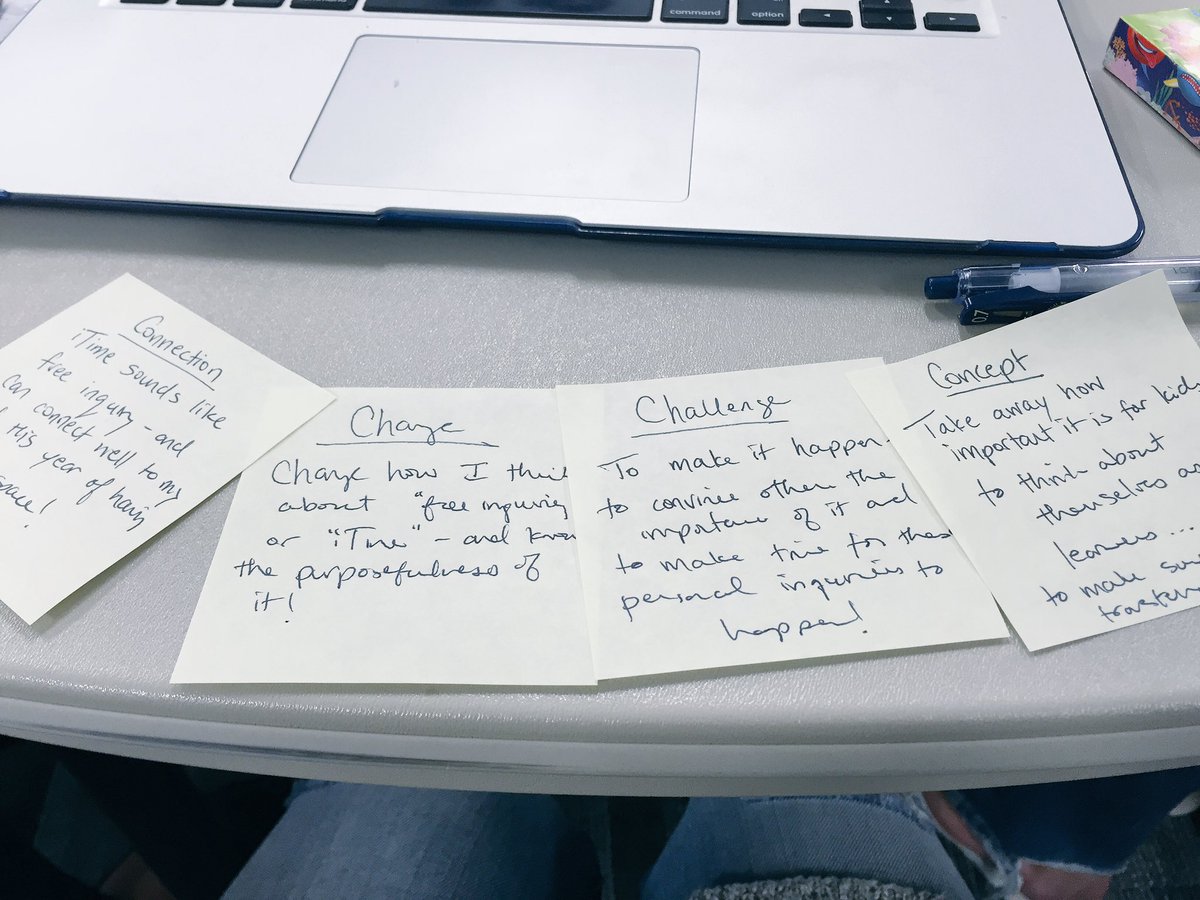 command
option
Connection
iTime sounds like
free inquiry - and
can connect well to my
this year of having
space!
Change
Change how I think
about "free inquiries
or "iTime" - and know
the purposefulness of
it!
Challenge
To make it happen -
to convince others the
importance of it and
to make time for these
personal inquiries to
happen!
Concept
Take away how
important it is for kids
to think about
themselves as
learners ...
to make sure
07